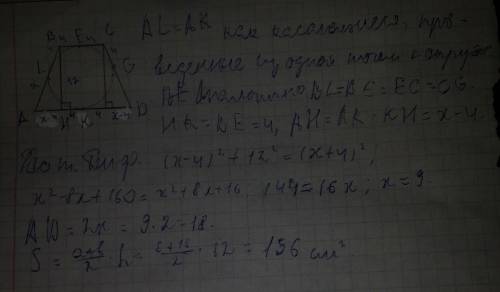 B 4 E 4 C
L G
x 12
A x-4 H 4 K 4 x-4 D
AL=AK как касательные, про-
веденные из одной точки к окруж.
Аналогично BL=BE=EC=CG
HK=BE=4, AH=AK-KH=x-4
По т. Пиф. (x-4)²+12²=(x+4)²,
x²-8x+160=x²+8x+16 144=16x; x=9
AD=2x=9·2=18.